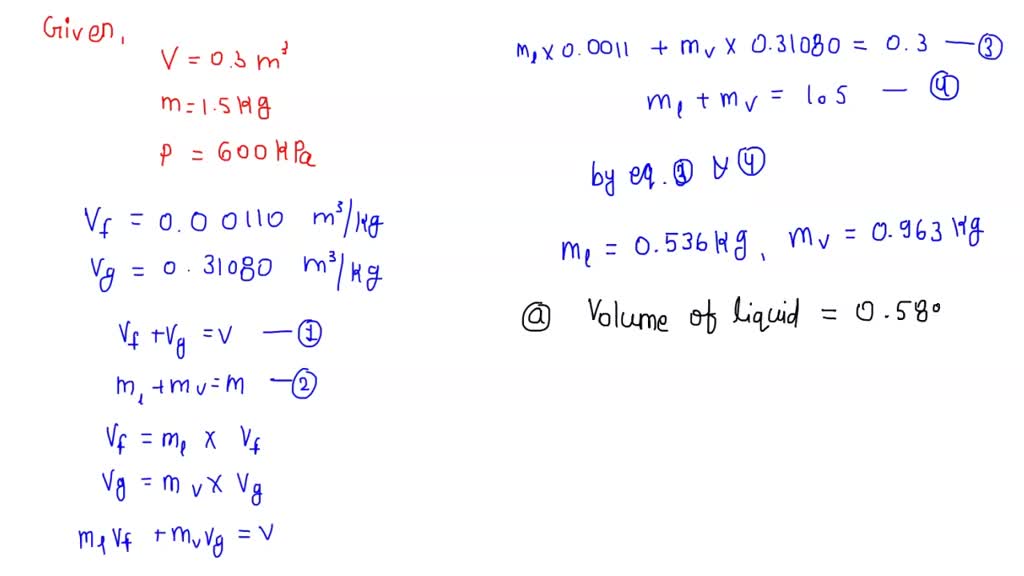 Given,
V = 0.3 m³
m = 1.5 kg
P = 600 kPa
Vf = 0.000110 m³/kg
Vg = 0.31080 m³/kg
Vf + Vg = V — ①
ml + mv = m — ②
Vf = ml × Vf
Vg = mv × Vg
ml Vf + mv Vg = V
ml × 0.0011 + mv × 0.31080 = 0.3 — ③
ml + mv = 1.5 — ④
by eq. ③ & ④
ml = 0.536 kg, mv = 0.963 kg
ⓐ Volume of liquid = 0.580